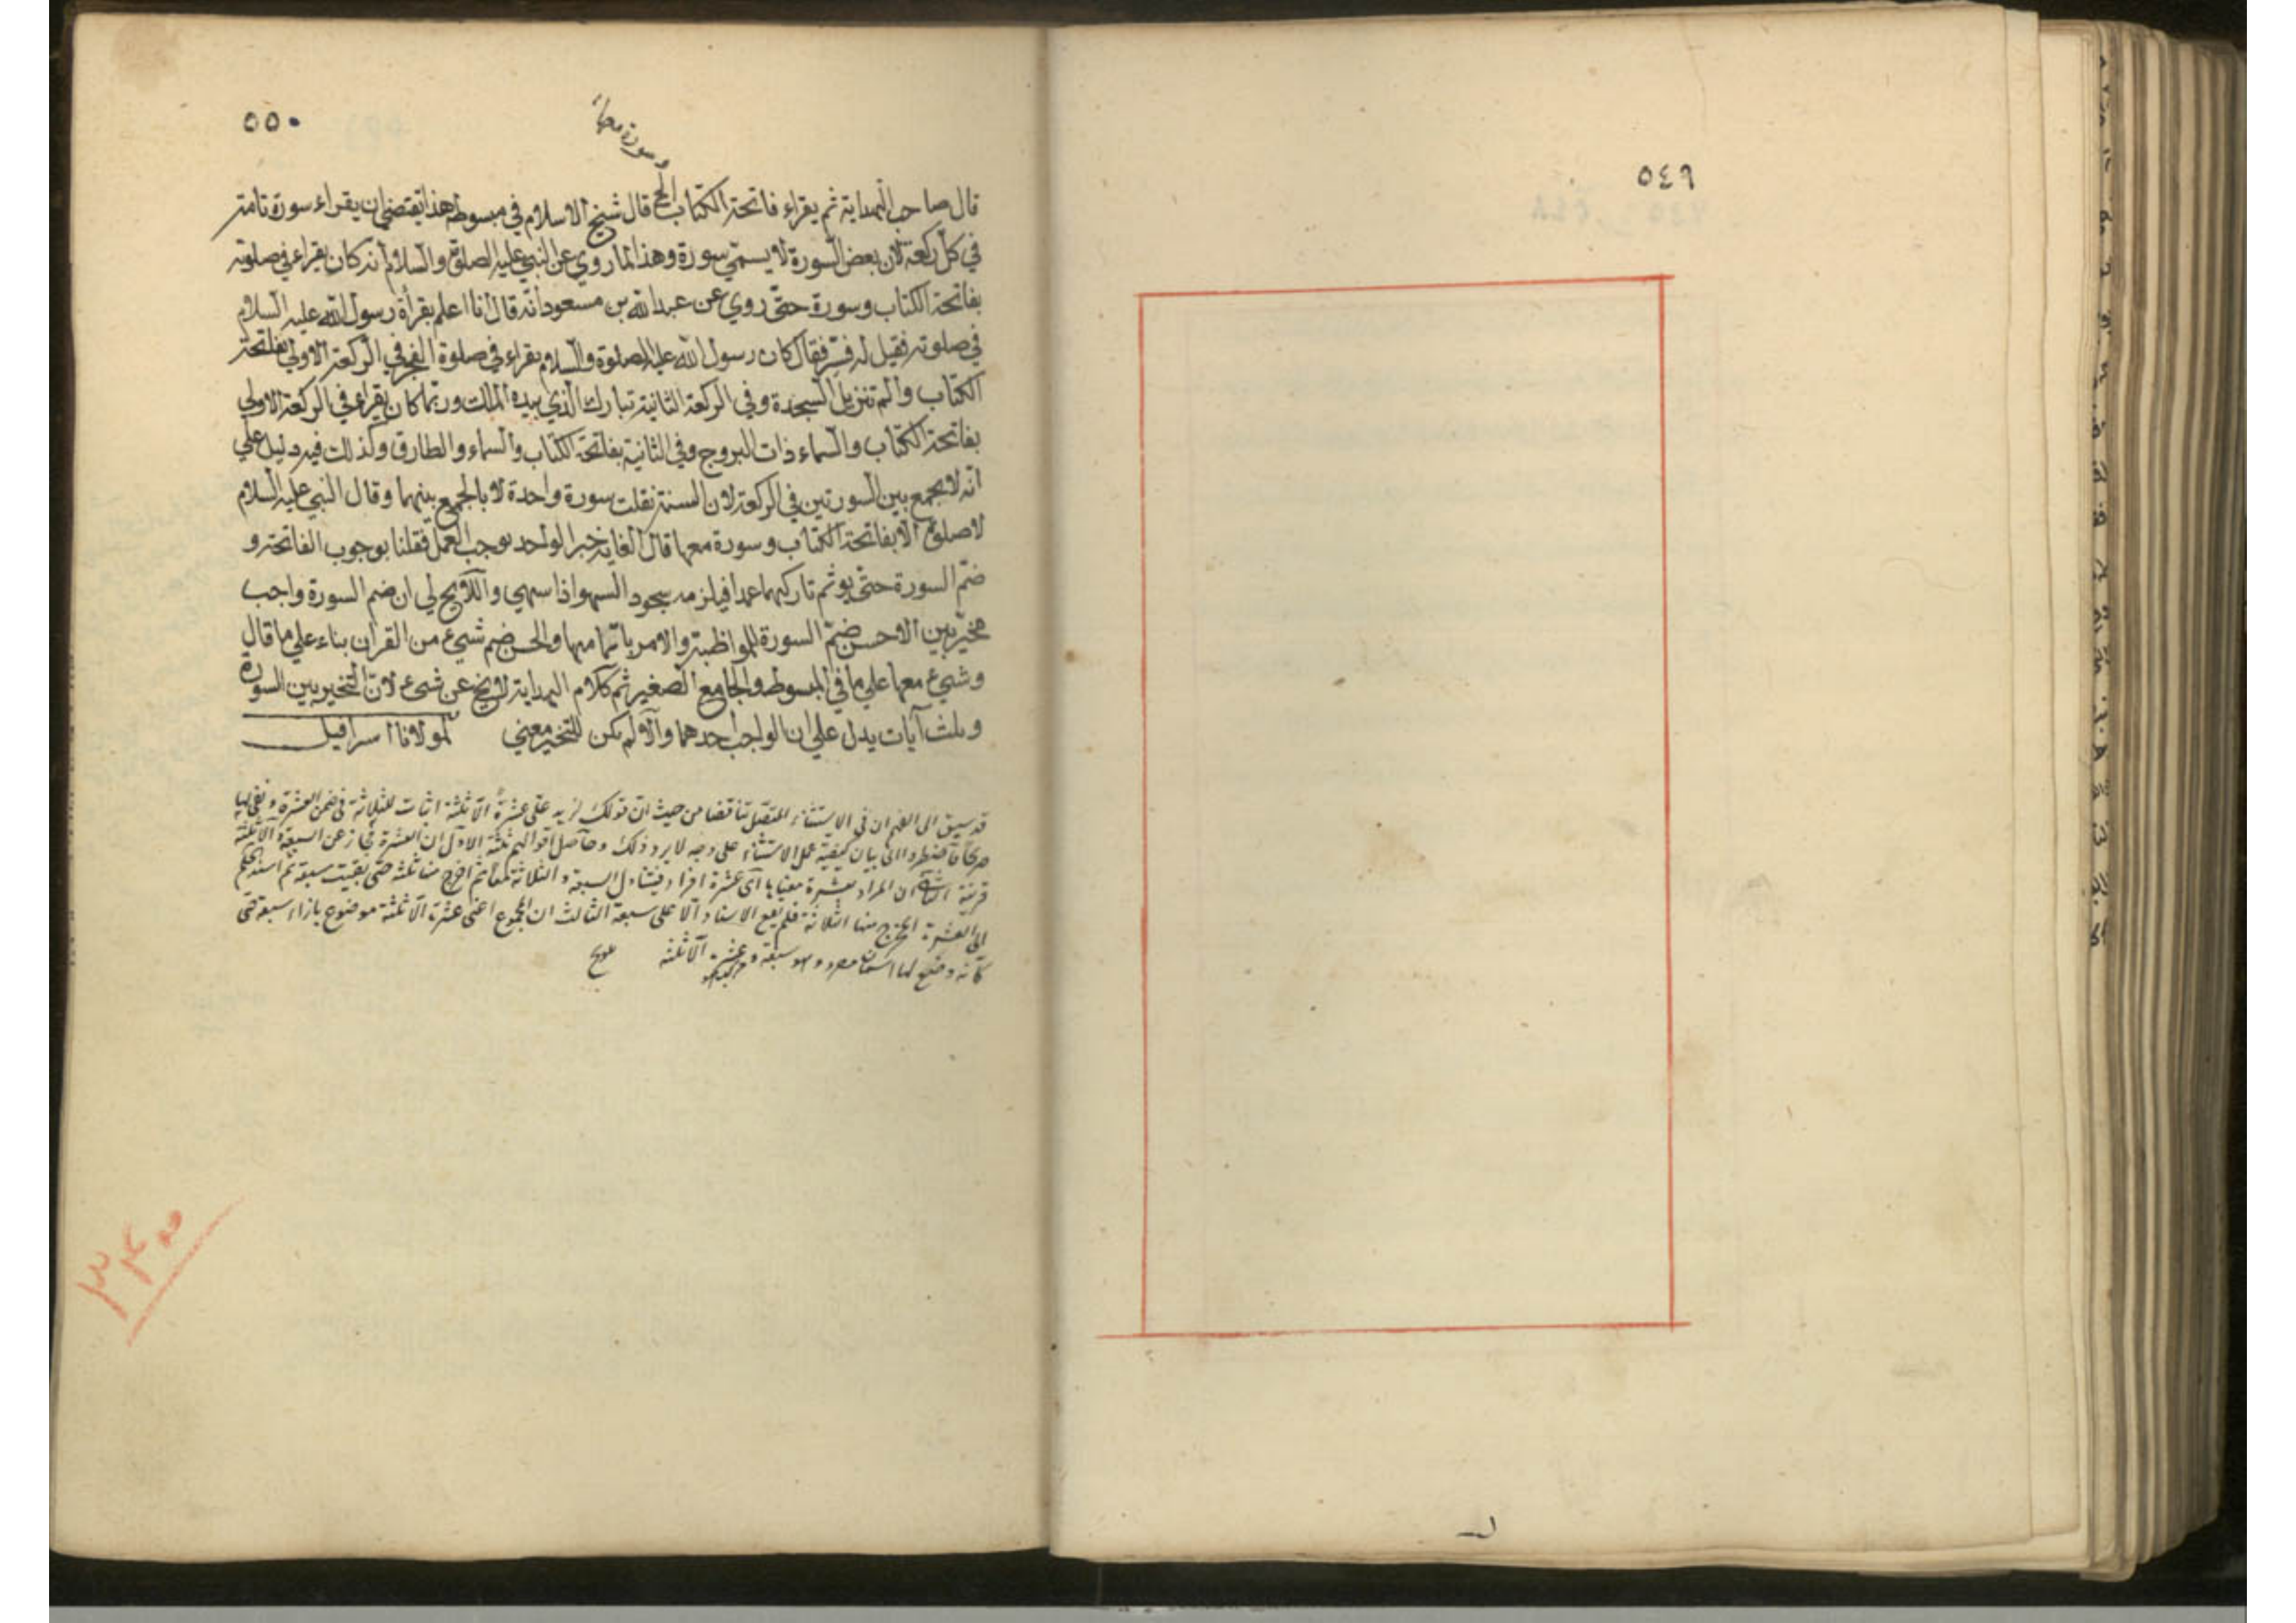 ٥٤٩
٥٥٠
وسورة معها
قال صاحب الهداية ثم يقراء فاتحة الكتاب الخ قال شيخ الاسلام في مبسوطه هذا يقتضي ان يقراء سورة تامة
في كل ركعة لان بعض السورة لا يسمّي سورة وهذا لما روي عن النبي عليه الصلوة والسلام انه كان يقراء في صلوته
بفاتحة الكتاب وسورة حتّى روي عن عبد الله بن مسعود انه قال انا اعلم بقرأة رسول الله عليه السلام
في صلوته فقيل له فسّر فقال كان رسول الله عليه الصلوة والسلام يقراء في صلوة الفجر في الركعة الاولي بفاتحة
الكتاب والم تنزيل السجدة وفي الركعة الثانية تبارك الذي بيده الملك وربما كان يقراء في الركعة الاولي
بفاتحة الكتاب والسماء ذات البروج وفي الثانية بفاتحة الكتاب والسماء والطارق وكذلك فيه دليل علي
انه لا يجمع بين السورتين في الركعة لان السنة نقلت سورة واحدة لا بالجمع بينهما وقال النبي عليه السلام
لا صلوة الا بفاتحة الكتاب وسورة معها قال الغاية خبر الواحد يوجب العمل فقلنا بوجوب الفاتحة و
ضمّ السورة حتّى يوثم تاركهما عمدا فيلزمه سجود السهو اذا سهي واللايح لي ان ضم السورة واجب
مخيّر بين الاحسن ضمّ السورة للمواظبة والامر باتمامها والحسن ضم شيء من القران بناء علي ما قال
وشيء معها علي ما في المبسوط والجامع الصغير ثم كلام الهداية لا يخ عن شيء لانّ التخيير بين السورة
وثلث آيات يدل علي ان الواجب احدهما والا لم يكن للتخيير معني لمولانا اسرافيل
قد يسبق الى الفهم ان في الاستثناء المتصل تناقضا من حيث ان قولك لزيد علىّ عشرة الا ثلثة اثبات للثلاثة في ضمن العشرة ونفي لها
صريحا فاضطروا الى بيان كيفية عمل الاستثناء على وجه لا يرد ذلك وحاصل اقوالهم ثلثة الاول ان العشرة مجاز عن السبعة والا ثلثة
قرينة الثاني ان المراد بعشرة معناها اي عشرة افراد فيتناول السبعة والثلاثة معا ثم اخرج منها ثلثة حتى بقيت سبعة ثم اسند الحكم
الى العشرة المخرج منها الثلاثة فلم يقع الاسناد الا على سبعة الثالث ان المجموع اعني عشرة الا ثلثة موضوع بازاء سبعة حتى
كانه وضع لها اسمان مفرد وهو سبعة ومركب هو عشرة الا ثلثة